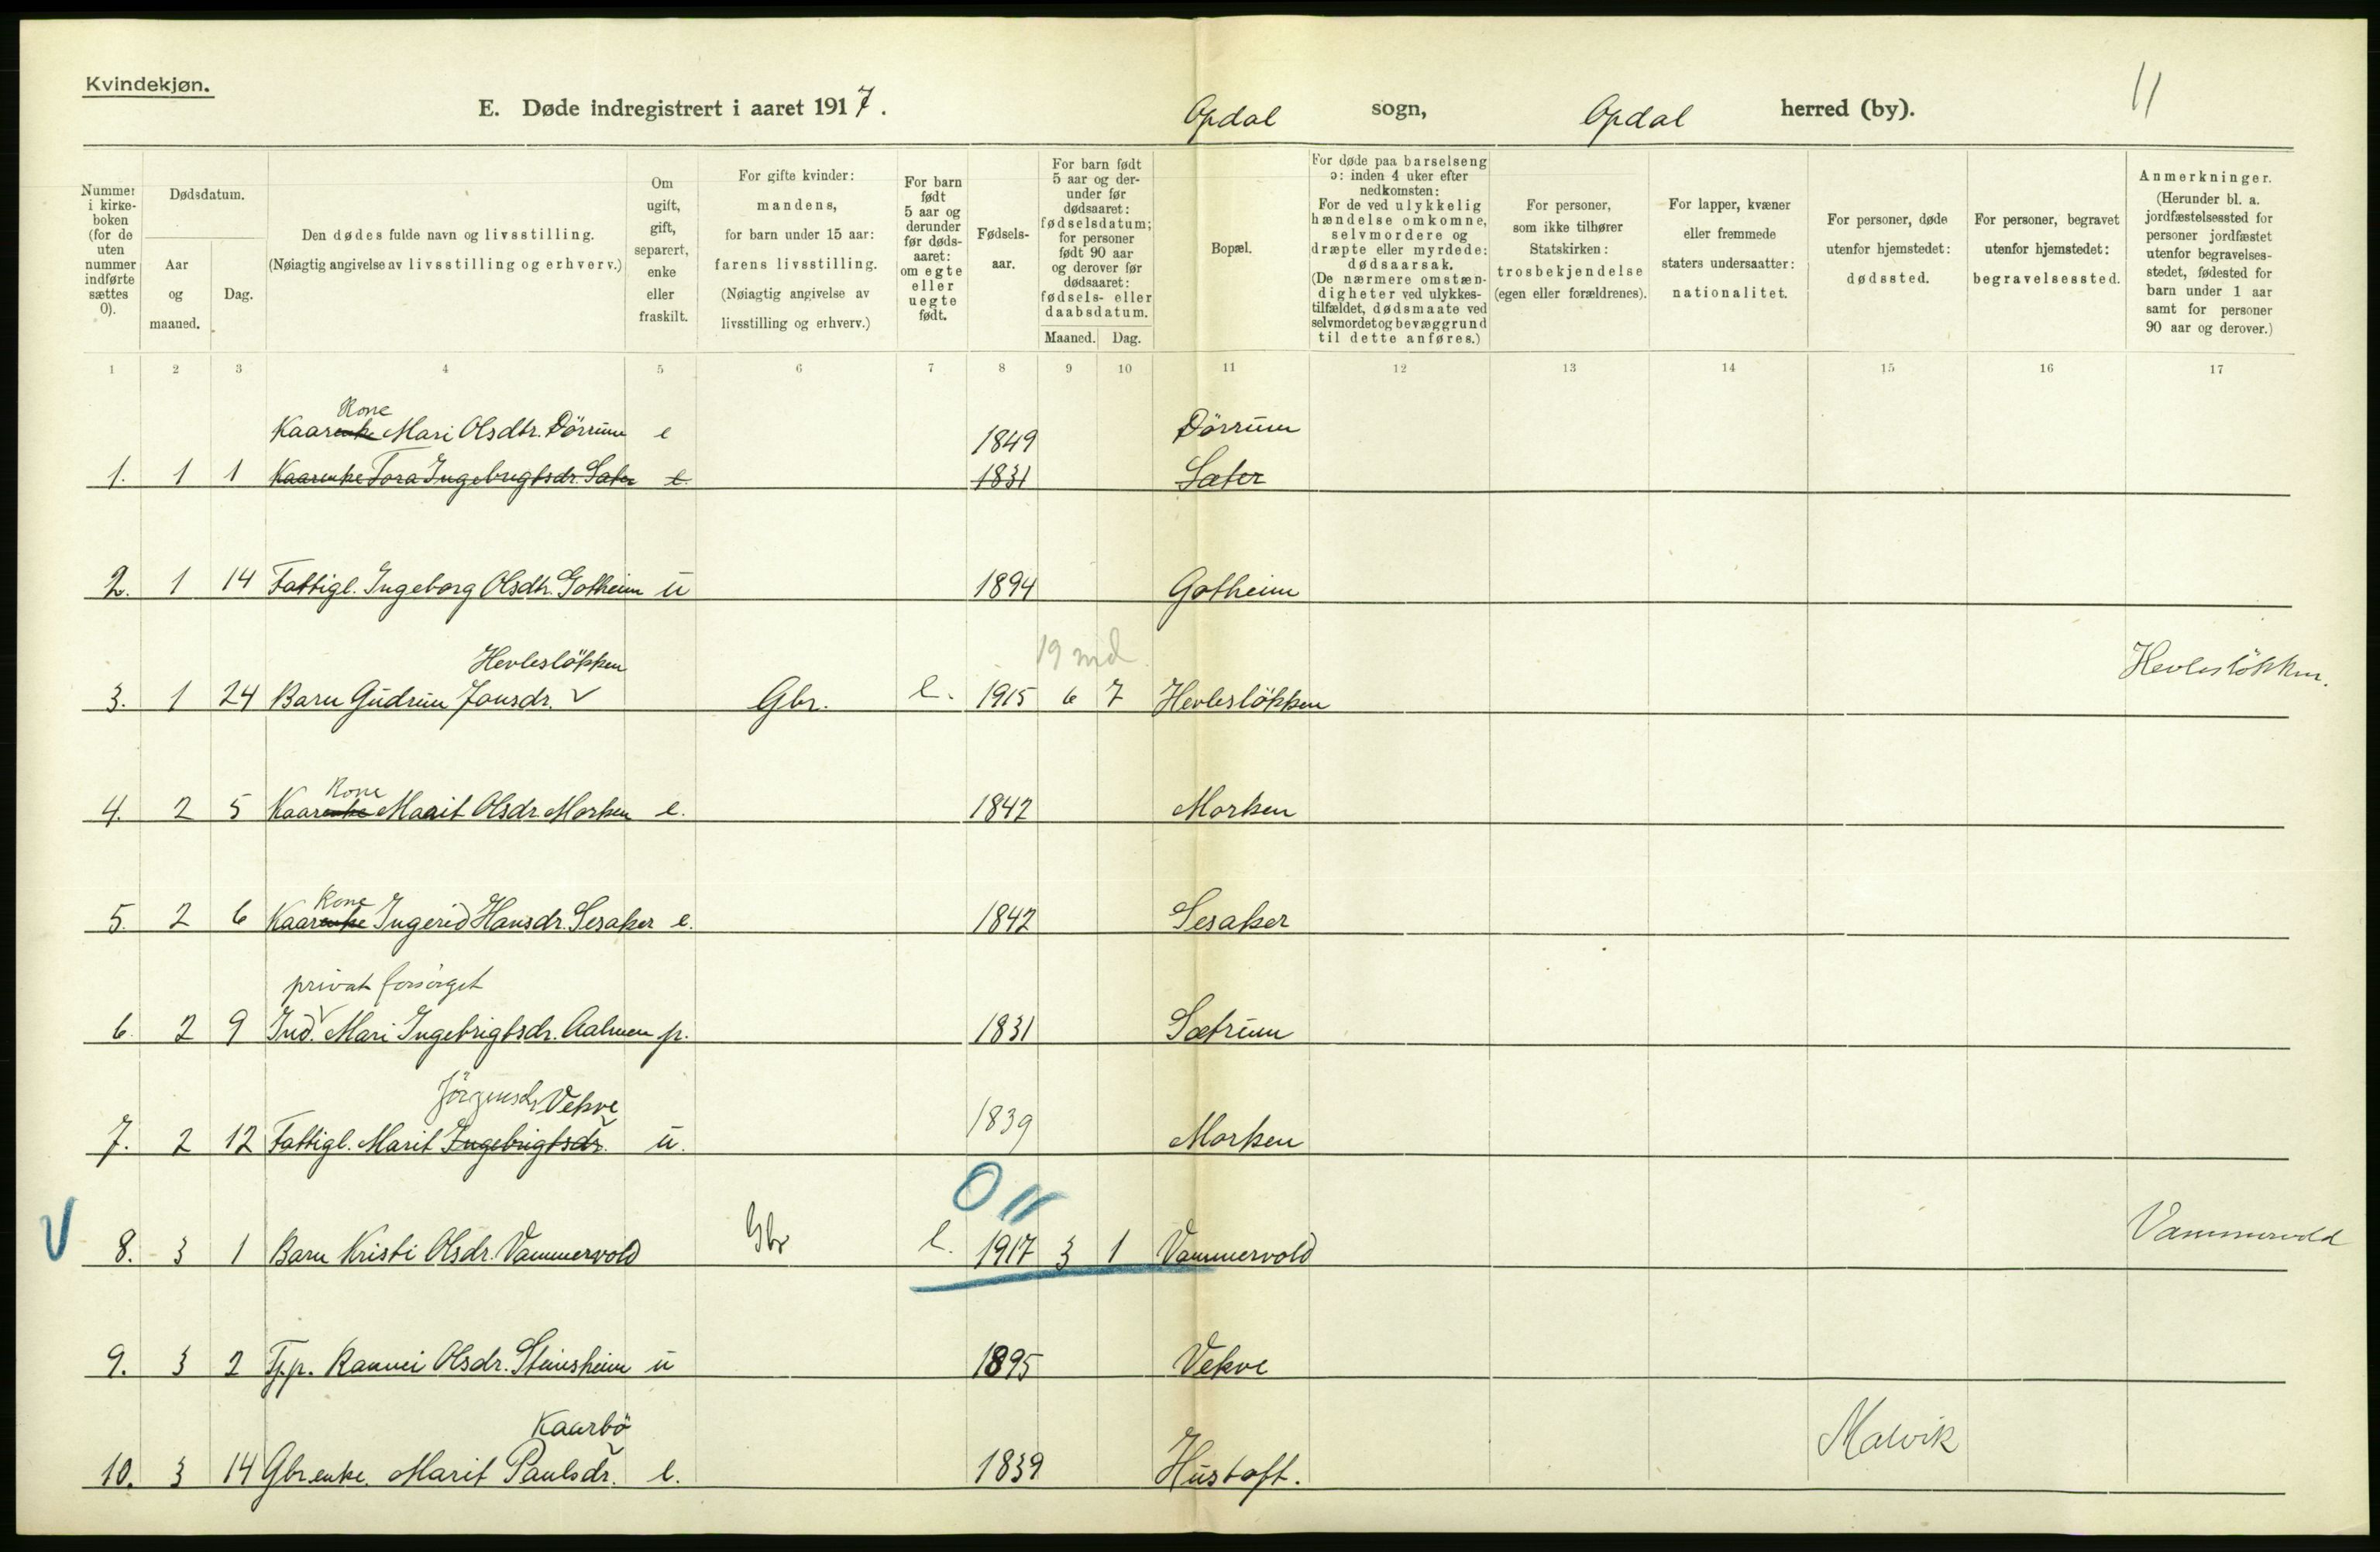 Kvindekjøn.
E. Døde indregistrert i aaret 1917.
Opdal sogn, Opdal herred (by).
11
Nummer i kirke-boken (for de uten nummer indførte sættes 0).
Dødsdatum.
Aar og maaned.
Dag.
Den dødes fulde navn og livsstilling.
(Nøiagtig angivelse av livsstilling og erhverv.)
Om ugift, gift, separert, enke eller fraskilt.
For gifte kvinder: mandens, for barn under 15 aar: farens livsstilling. (Nøiagtig angivelse av livsstilling og erhverv.)
For barn født 5 aar og derunder før døds-aaret: om egte eller uegte født.
Fødsels-aar.
For barn født 5 aar og der-under før dødsaaret: fødselsdatum; for personer født 90 aar og derover før dødsaaret: fødsels- eller daabsdatum.
Maaned. Dag.
Bopæl.
For døde paa barselseng ɔ: inden 4 uker efter nedkomsten: For de ved ulykkelig hændelse omkomne, selvmordere og dræpte eller myrdede: dødsaarsak. (De nærmere omstæn-digheter ved ulykkes-tilfældet, dødsmaate ved selvmordet og bevæggrund til dette anføres.)
For personer, som ikke tilhører Statskirken: trosbekjendelse (egen eller forældrenes).
For lapper, kvæner eller fremmede staters undersaatter: nationalitet.
For personer, døde utenfor hjemstedet: dødssted.
For personer, begravet utenfor hjemstedet: begravelsessted.
Anmerkninger. (Herunder bl. a. jordfæstelsessted for personer jordfæstet utenfor begravelses-stedet, fødested for barn under 1 aar samt for personer 90 aar og derover.)
1 2 3 4 5 6 7 8 9 10 11 12 13 14 15 16 17
Kone
Kaarenke Mari Olsdtr. Dörrum e 1849 Dörrum
1. 1 1 Kaarenke Tora Ingebrigtsdr. Sæter e. 1831 Sæter
2. 1 14 Fattigl. Ingeborg Olsdtr. Gotheim u 1894 Gotheim
Hevlesløkken 19 md.
3. 1 24 Barn Gudrun Jonsdr. V Gbr. e. 1915 6 7 Hevlesløkken Hevlesløkken.
Kone
4. 2 5 Kaarenke Marit Olsdr. Morken e. 1842 Morken
Kone
5. 2 6 Kaarenke Ingerid Hansdr. Sesaker e. 1842 Sesaker
privat forsörget
6. 2 9 Ind. Mari Ingebrigtsdr. Aalmen p. 1831 Sætrum
Jörgensdr Vekve
7. 2 12 Fattigl. Marit Ingebrigtsdr. u. 1839 Morken
0 11
V 8. 3 1 Barn Kristi Olsdr. Vammervold Gbr e. 1917 3 1 Vammervold Vammervold
9. 3 2 Tjp. Rannei Olsdr. Steinsheim u 1895 Vekve
Kaarbö
10. 3 14 Gbrenke. Marit Paulsdr. e. 1839 Hustoft. Malvik